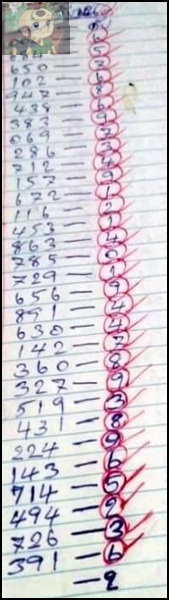 650 — 6
102 — 8
947 — 8
438 — 6
383 — 9
069 — 7
286 — 3
712 — 4
157 — 9
672 — 1
116 — 2
453 — 1
863 — 4
785 — 0
729 — 1
656 — 9
891 — 4
630 — 4
142 — 7
360 — 8
327 — 9
519 — 3
431 — 8
224 — 9
143 — 6
714 — 5
494 — 2
726 — 3
391 — 6
— 2